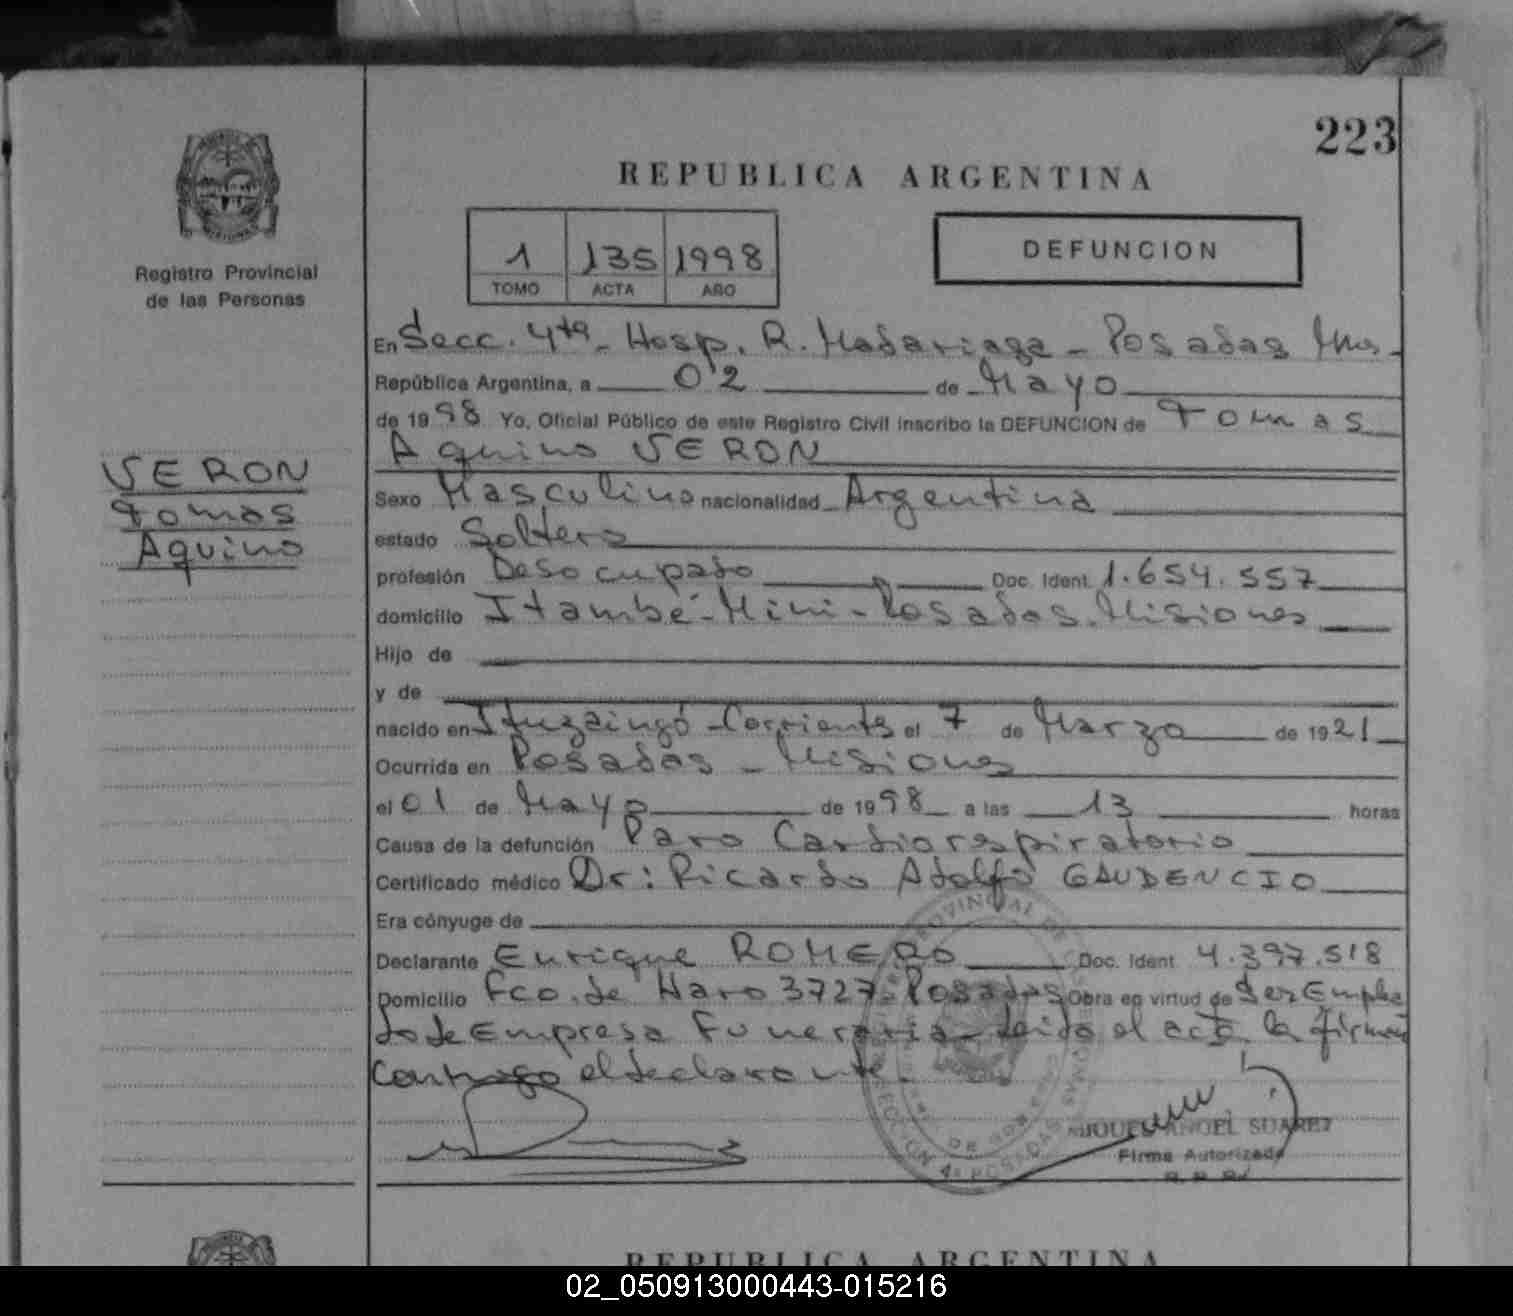 223
REPUBLICA ARGENTINA
Registro Provincial
de las Personas
1 135 1998
TOMO ACTA AÑO
DEFUNCION
En Secc. 4ta - Hosp. R. Madariaga - Posadas Mnes -
República Argentina, a 02 de Mayo
de 1998 Yo, Oficial Público de este Registro Civil inscribo la DEFUNCION de Tomas
Aquino VERON
VERON
Tomas
Aquino
Sexo Masculino nacionalidad Argentina
estado Soltero
profesión Desocupado Doc. Ident. 1.654.557
domicilio Itambé-Mini-Posadas.Misiones
Hijo de
y de
nacido en Ituzaingó - Corrientes el 7 de Marzo de 1921
Ocurrida en Posadas - Misiones
el 01 de Mayo de 1998 a las 13 horas
Causa de la defunción Paro Cardiorespiratorio
Certificado médico Dr: Ricardo Adolfo GAUDENCIO
Era cónyuge de
Declarante Enrique ROMERO Doc. Ident 4.397.518
Domicilio Fco. de Haro 3727-Posadas Obra en virtud de Ser Emplea
do de Empresa Funeraria - leido el acta la firman
conmigo el declarante.
MIGUEL ANGEL SUAREZ
Firma Autorizada
SECCION 4ª POSADAS
REPUBLICA ARGENTINA
02_050913000443-015216